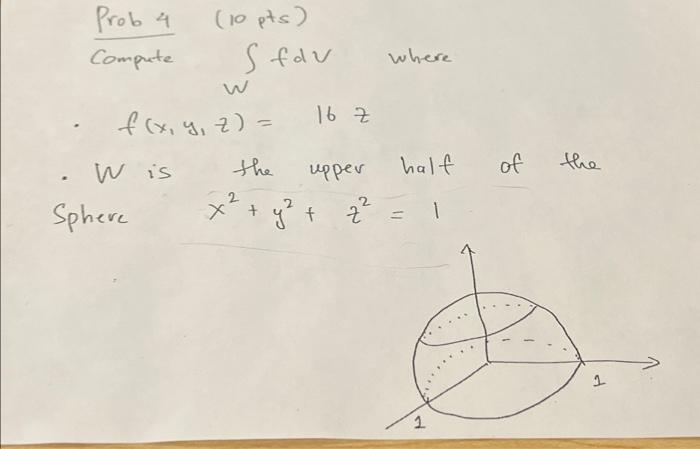 Prob 4 (10 pts)
Compute ∫ f dV where
W
• f(x, y, z) = 16 z
• W is the upper half of the
Sphere x² + y² + z² = 1
1
1